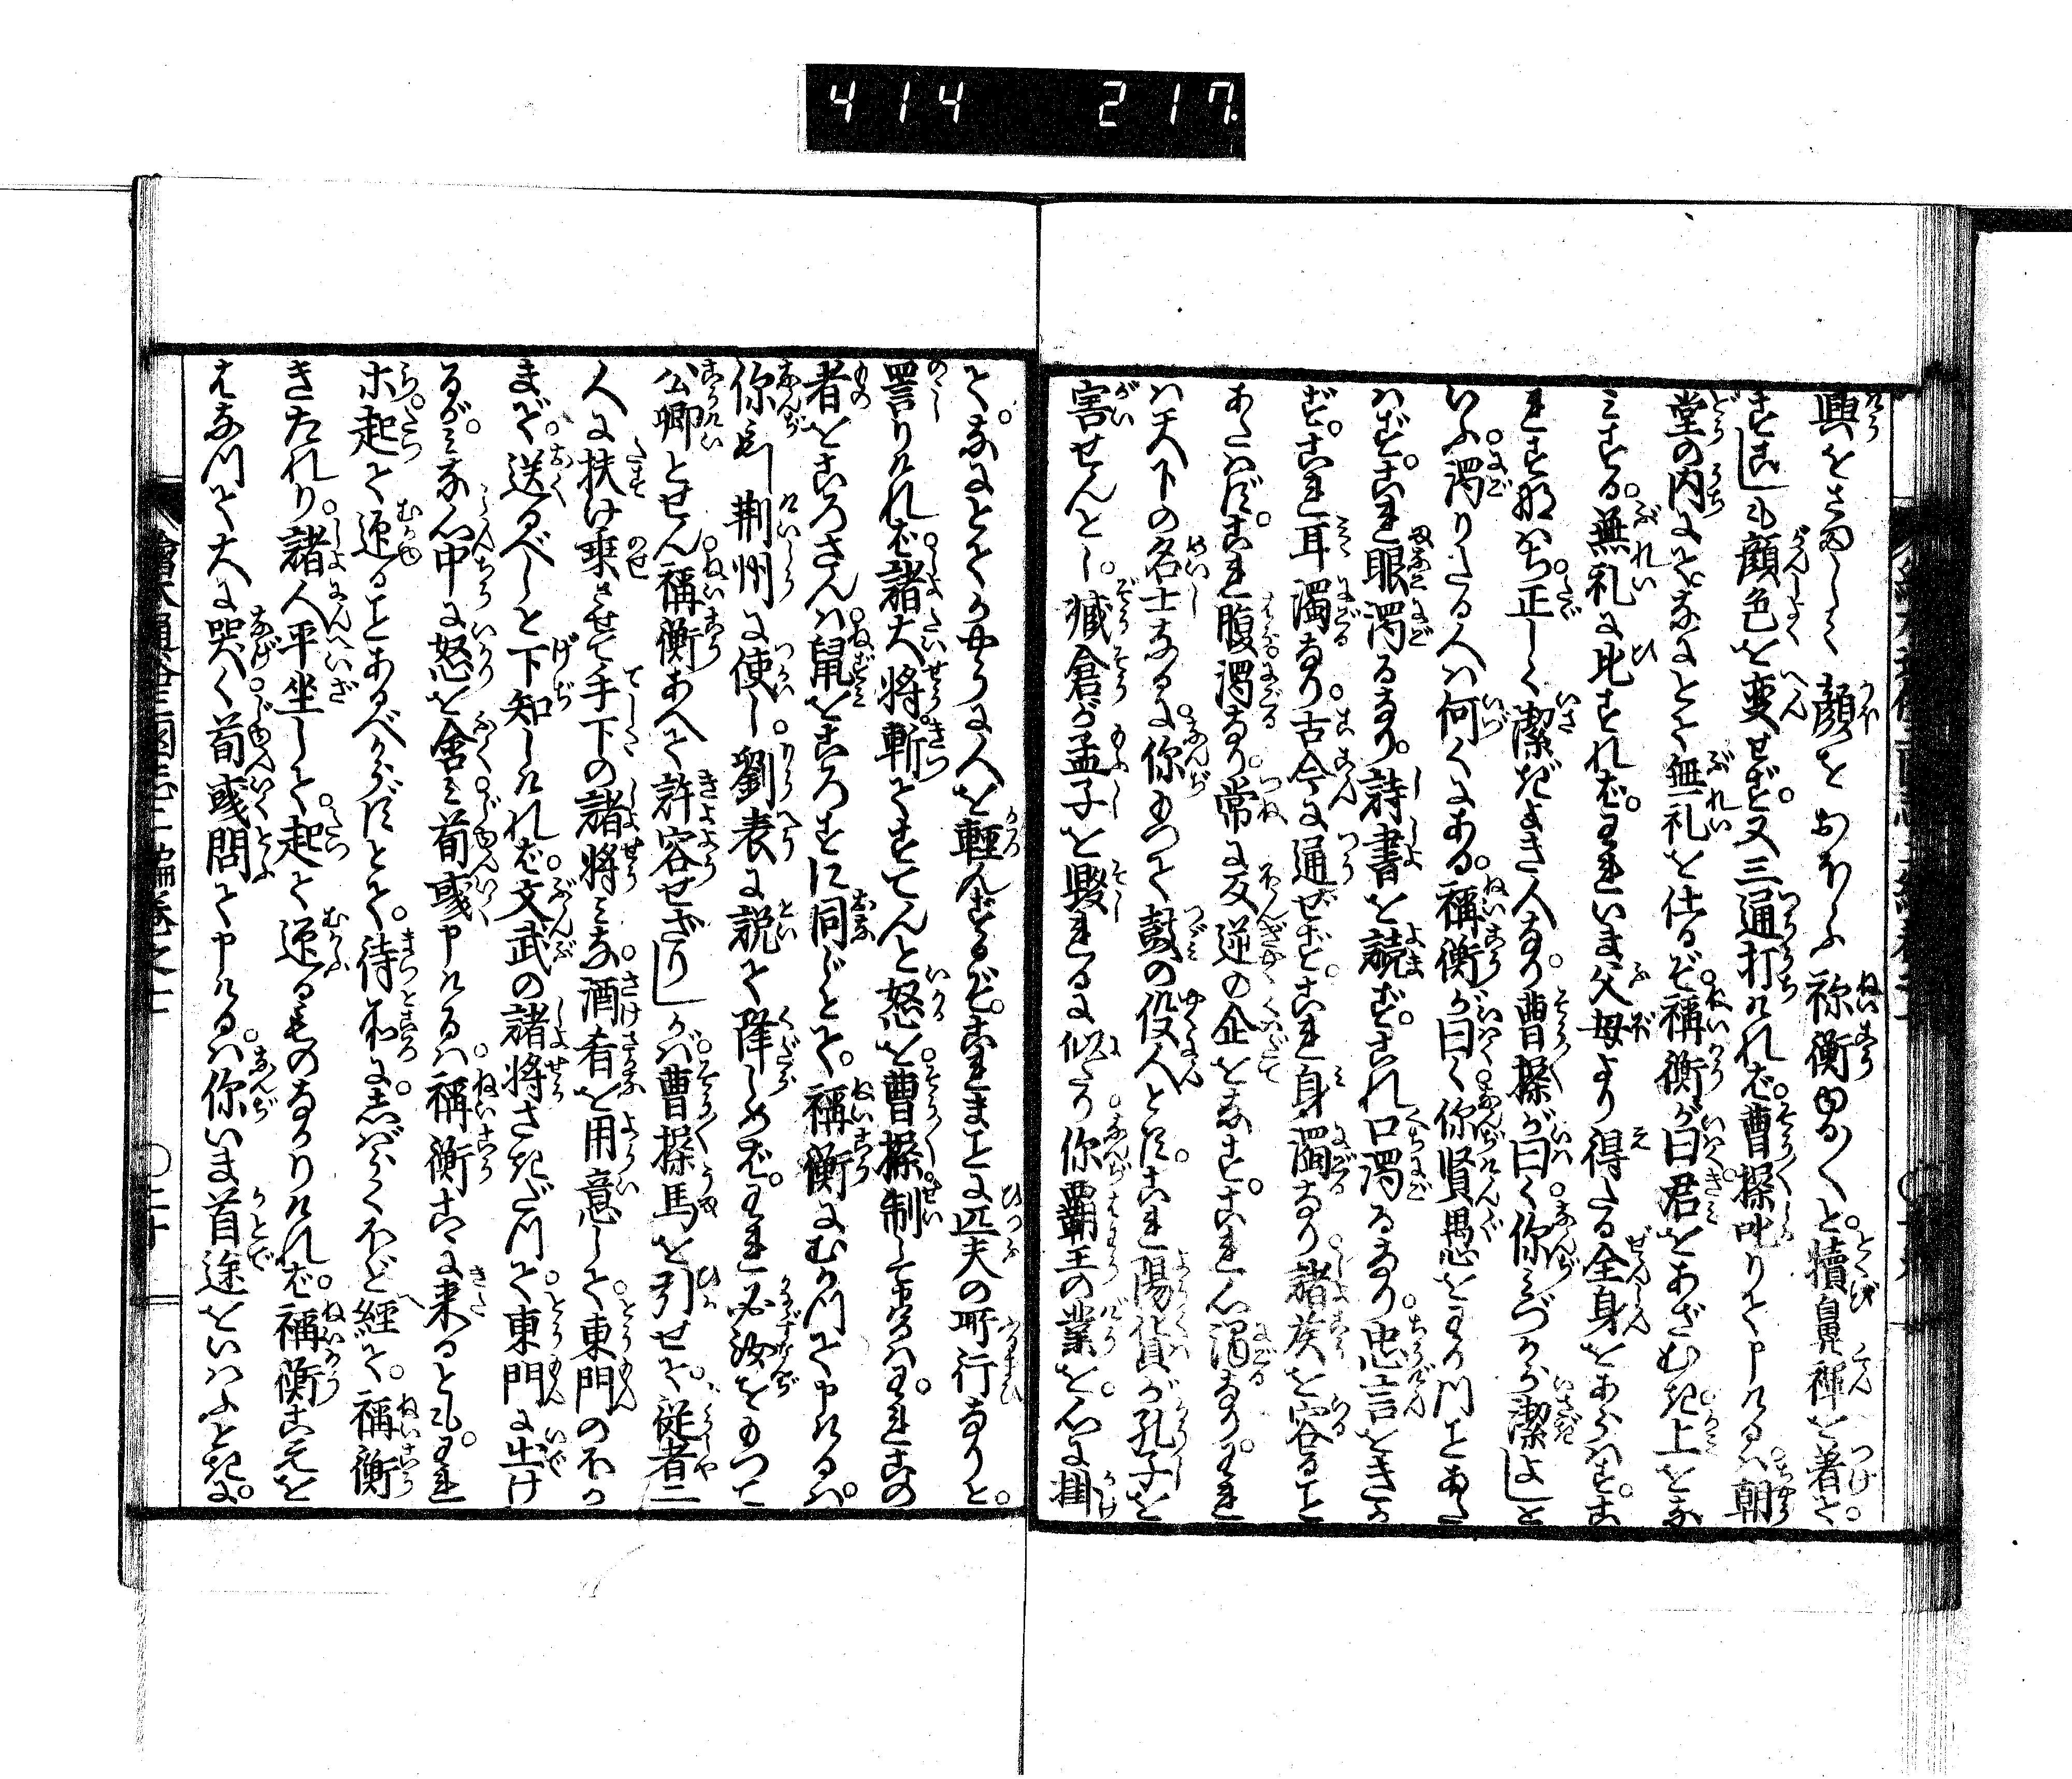 414 217
興をさまして顔をおほふ祢衡ゆる〱と。犢鼻褌を着て。
すこしも顔色を変せず。又三通打けれバ。曹操叱りて申けるハ朝
堂の内にて。なにとて無礼を仕るぞ。禰衡が曰君をあざむき上をな
みする。無礼に比すれバ。われいま父母より得たる全身をあらハす。こ
れすなハち。正しく潔だよき人なり。曹操が曰く你ミづから潔よしと
いふ。濁りたる人ハ何くにある。禰衡が曰く你賢愚をわかつことあた
ハず。これ眼濁るなり。詩書を読ず。これ口濁るなり。忠言をきか
ず。これ耳濁るなり。古今に通ぜず。これ身濁るなり諸侯を容ること
あたハず。これ腹濁るなり。常に反逆の企をなす。これ心濁るなり。われ
ハ天下の名士なるに。你もつて鼓の役人とす。これ陽貨が孔子を
害せんとし。臧倉が孟子を毀れるに似たり你覇王の業を。心に掛
て。なにとてかやうに人を軽んずるぞ。これまことに匹夫の所行なりと。
詈りけれバ。諸大将。斬てすてんと怒を。曹操制して申るハ。われこの
者をころさんハ。鼠をころすに同じとて。禰衡にむかつて申けるハ。
你則荆州に使し。劉表に説て降しめバ。われ必汝をもつて
公卿とせん。禰衡あへて許容せざりしかバ。曹操馬を引せて。従者二
人に扶け乗させて手下の諸将ミな。酒肴を用意して。東門の外ま
まで。送るべしと下知しけれバ。文武の諸将さきだつて。東門に出け
るが。ミな心中に怒を含ミ。荀彧申けるハ。禰衡こゝに来るとも。われ
ら。起て迎ることあるべからずとて。待所に。しばらくほど経て。禰衡
きたれり。諸人平坐して。起て迎るものなかりけれバ。禰衡これを
はなつて大に哭く。荀彧問て申けるハ。你いま首途をいハふときに。